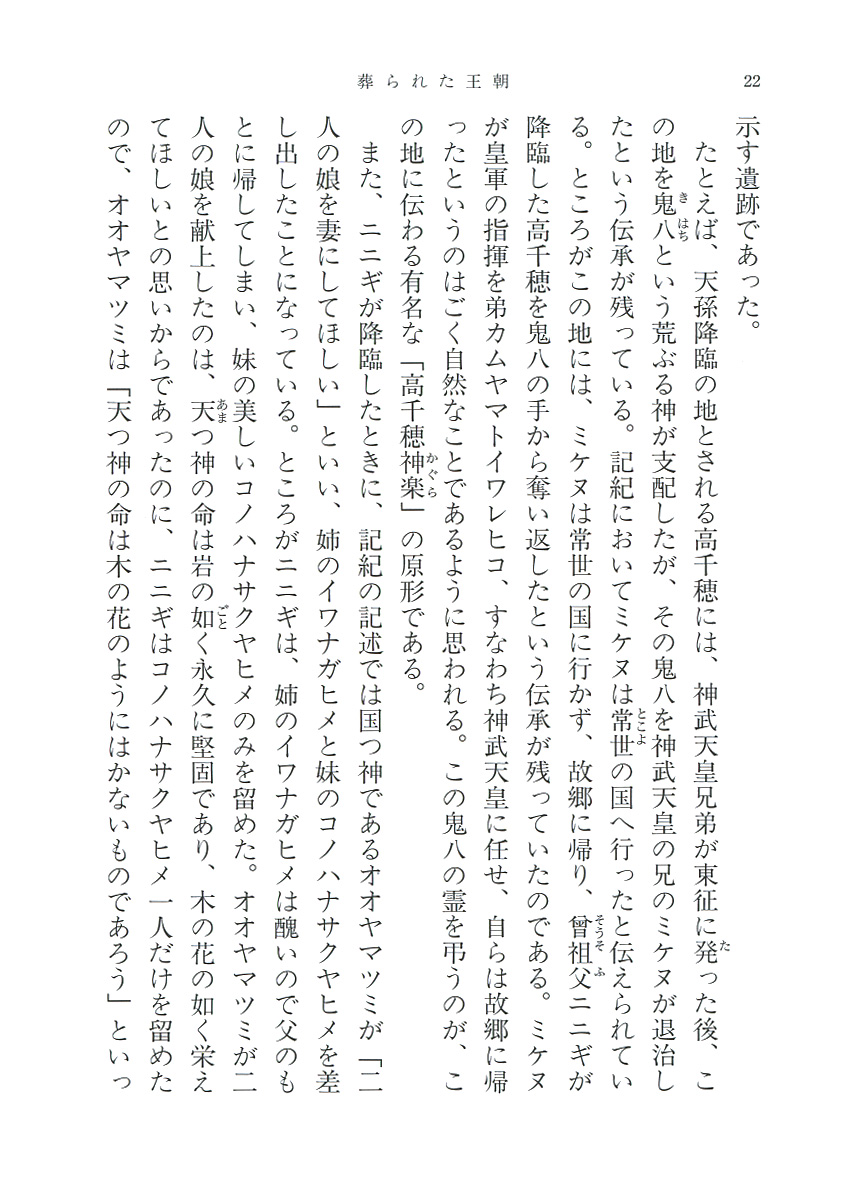 葬られた王朝
22
示す遺跡であった。
　たとえば、天孫降臨の地とされる高千穂には、神武天皇兄弟が東征に発った後、こ
の地を鬼八という荒ぶる神が支配したが、その鬼八を神武天皇の兄のミケヌが退治し
たという伝承が残っている。記紀においてミケヌは常世の国へ行ったと伝えられてい
る。ところがこの地には、ミケヌは常世の国に行かず、故郷に帰り、曾祖父ニニギが
降臨した高千穂を鬼八の手から奪い返したという伝承が残っていたのである。ミケヌ
が皇軍の指揮を弟カムヤマトイワレヒコ、すなわち神武天皇に任せ、自らは故郷に帰
ったというのはごく自然なことであるように思われる。この鬼八の霊を弔うのが、こ
の地に伝わる有名な「高千穂神楽」の原形である。
　また、ニニギが降臨したときに、記紀の記述では国つ神であるオオヤマツミが「二
人の娘を妻にしてほしい」といい、姉のイワナガヒメと妹のコノハナサクヤヒメを差
し出したことになっている。ところがニニギは、姉のイワナガヒメは醜いので父のも
とに帰してしまい、妹の美しいコノハナサクヤヒメのみを留めた。オオヤマツミが二
人の娘を献上したのは、天つ神の命は岩の如く永久に堅固であり、木の花の如く栄え
てほしいとの思いからであったのに、ニニギはコノハナサクヤヒメ一人だけを留めた
ので、オオヤマツミは「天つ神の命は木の花のようにはかないものであろう」といっ